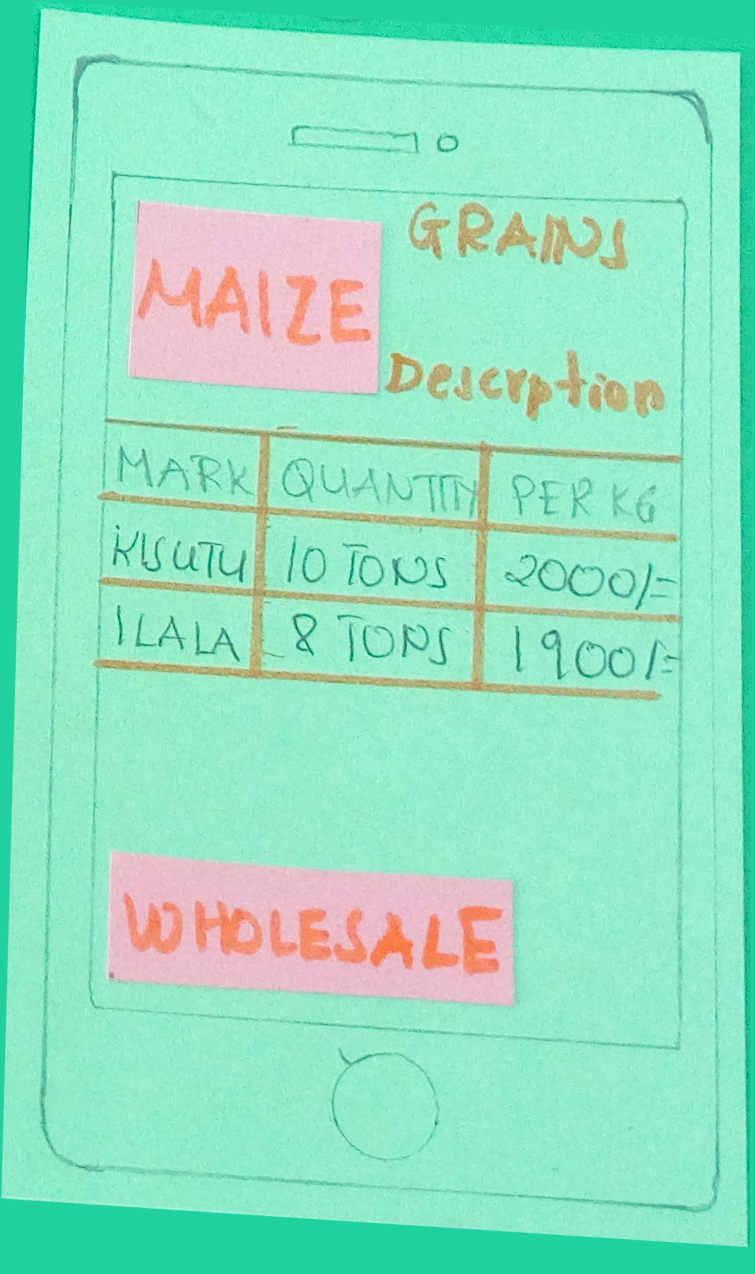 GRAINS
MAIZE
Descrption
MARK QUANTITY PER KG
KISUTU 10 TONS 2000/=
ILALA 8 TONS 1900/=
WHOLESALE